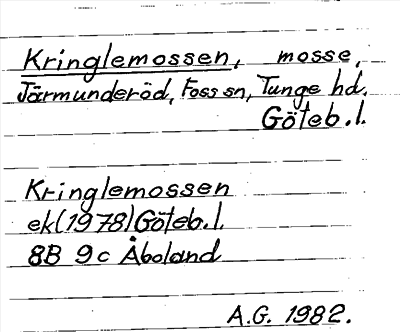 Kringlemossen, mosse,
Järmunderöd, Foss sn, Tunge hd.
Göteb.l.
Kringlemossen
ek(1978)Göteb.l.
8B 9c Åboland
A.G. 1982.